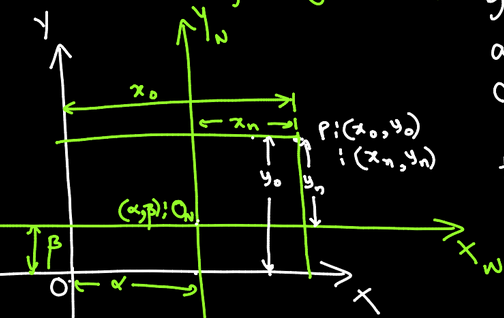 Y
Y_N
x_o
x_n
P:(x_o, y_o)
:(x_n, y_n)
y_o
y_n
(α,β):O_N
X_N
β
O
α
X